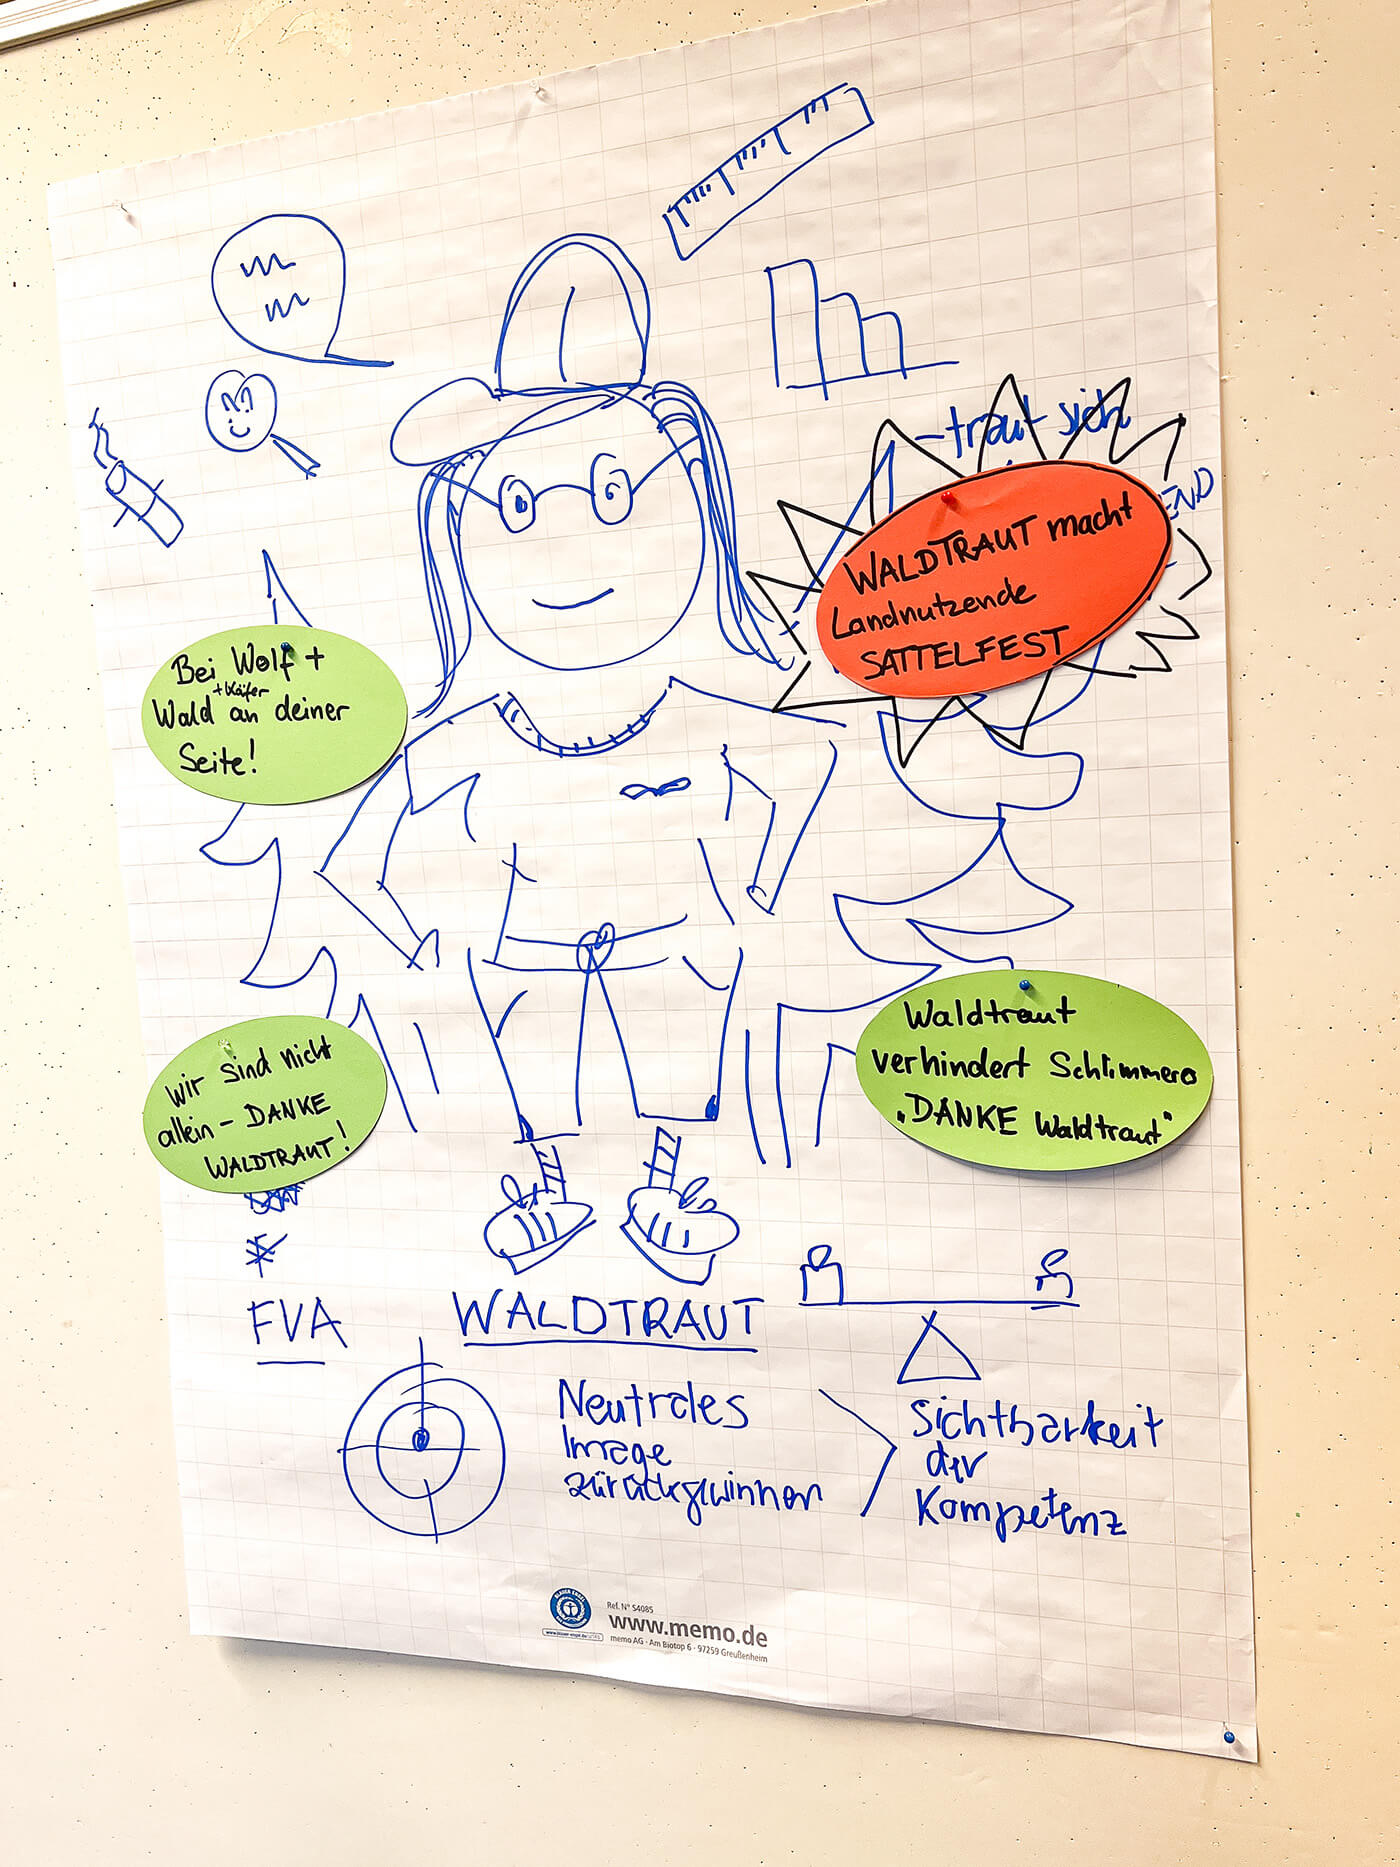 - traut sich
END
WALDTRAUT macht
Landnutzende
SATTELFEST
Bei Wolf +
+ Käfer
Wald an deiner
Seite!
Wir sind nicht
allein - DANKE
WALDTRAUT!
Waldtraut
verhindert Schlimmeres
„DANKE Waldtraut"
FVA
WALDTRAUT
Neutrales
Image
zürückgewinnen
Sichtbarkeit
der
Kompetenz
Ref. N° S4085
www.memo.de
memo AG · Am Biotop 6 · 97259 Greußenheim